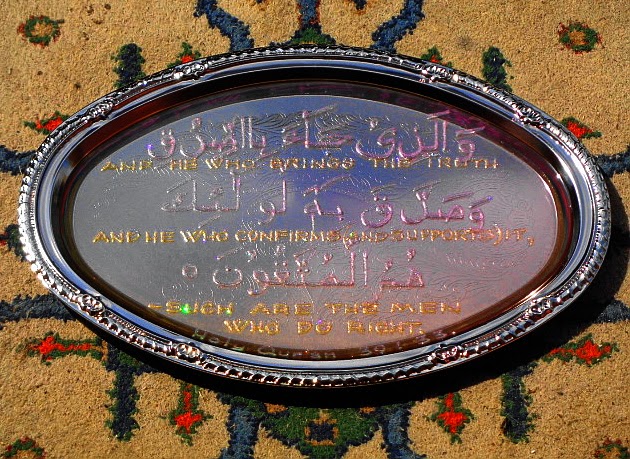 وَالَّذِىْ جَآءَ بِالصِّدْقِ
AND HE WHO BRINGS THE TRUTH
وَصَدَّقَ بِهٖ اُولٰٓئِكَ
AND HE WHO CONFIRMS (AND SUPPORTS) IT,
هُمُ الْمُتَّقُوْنَ
-SUCH ARE THE MEN
WHO DO RIGHT.
Holy Quran 39:33.